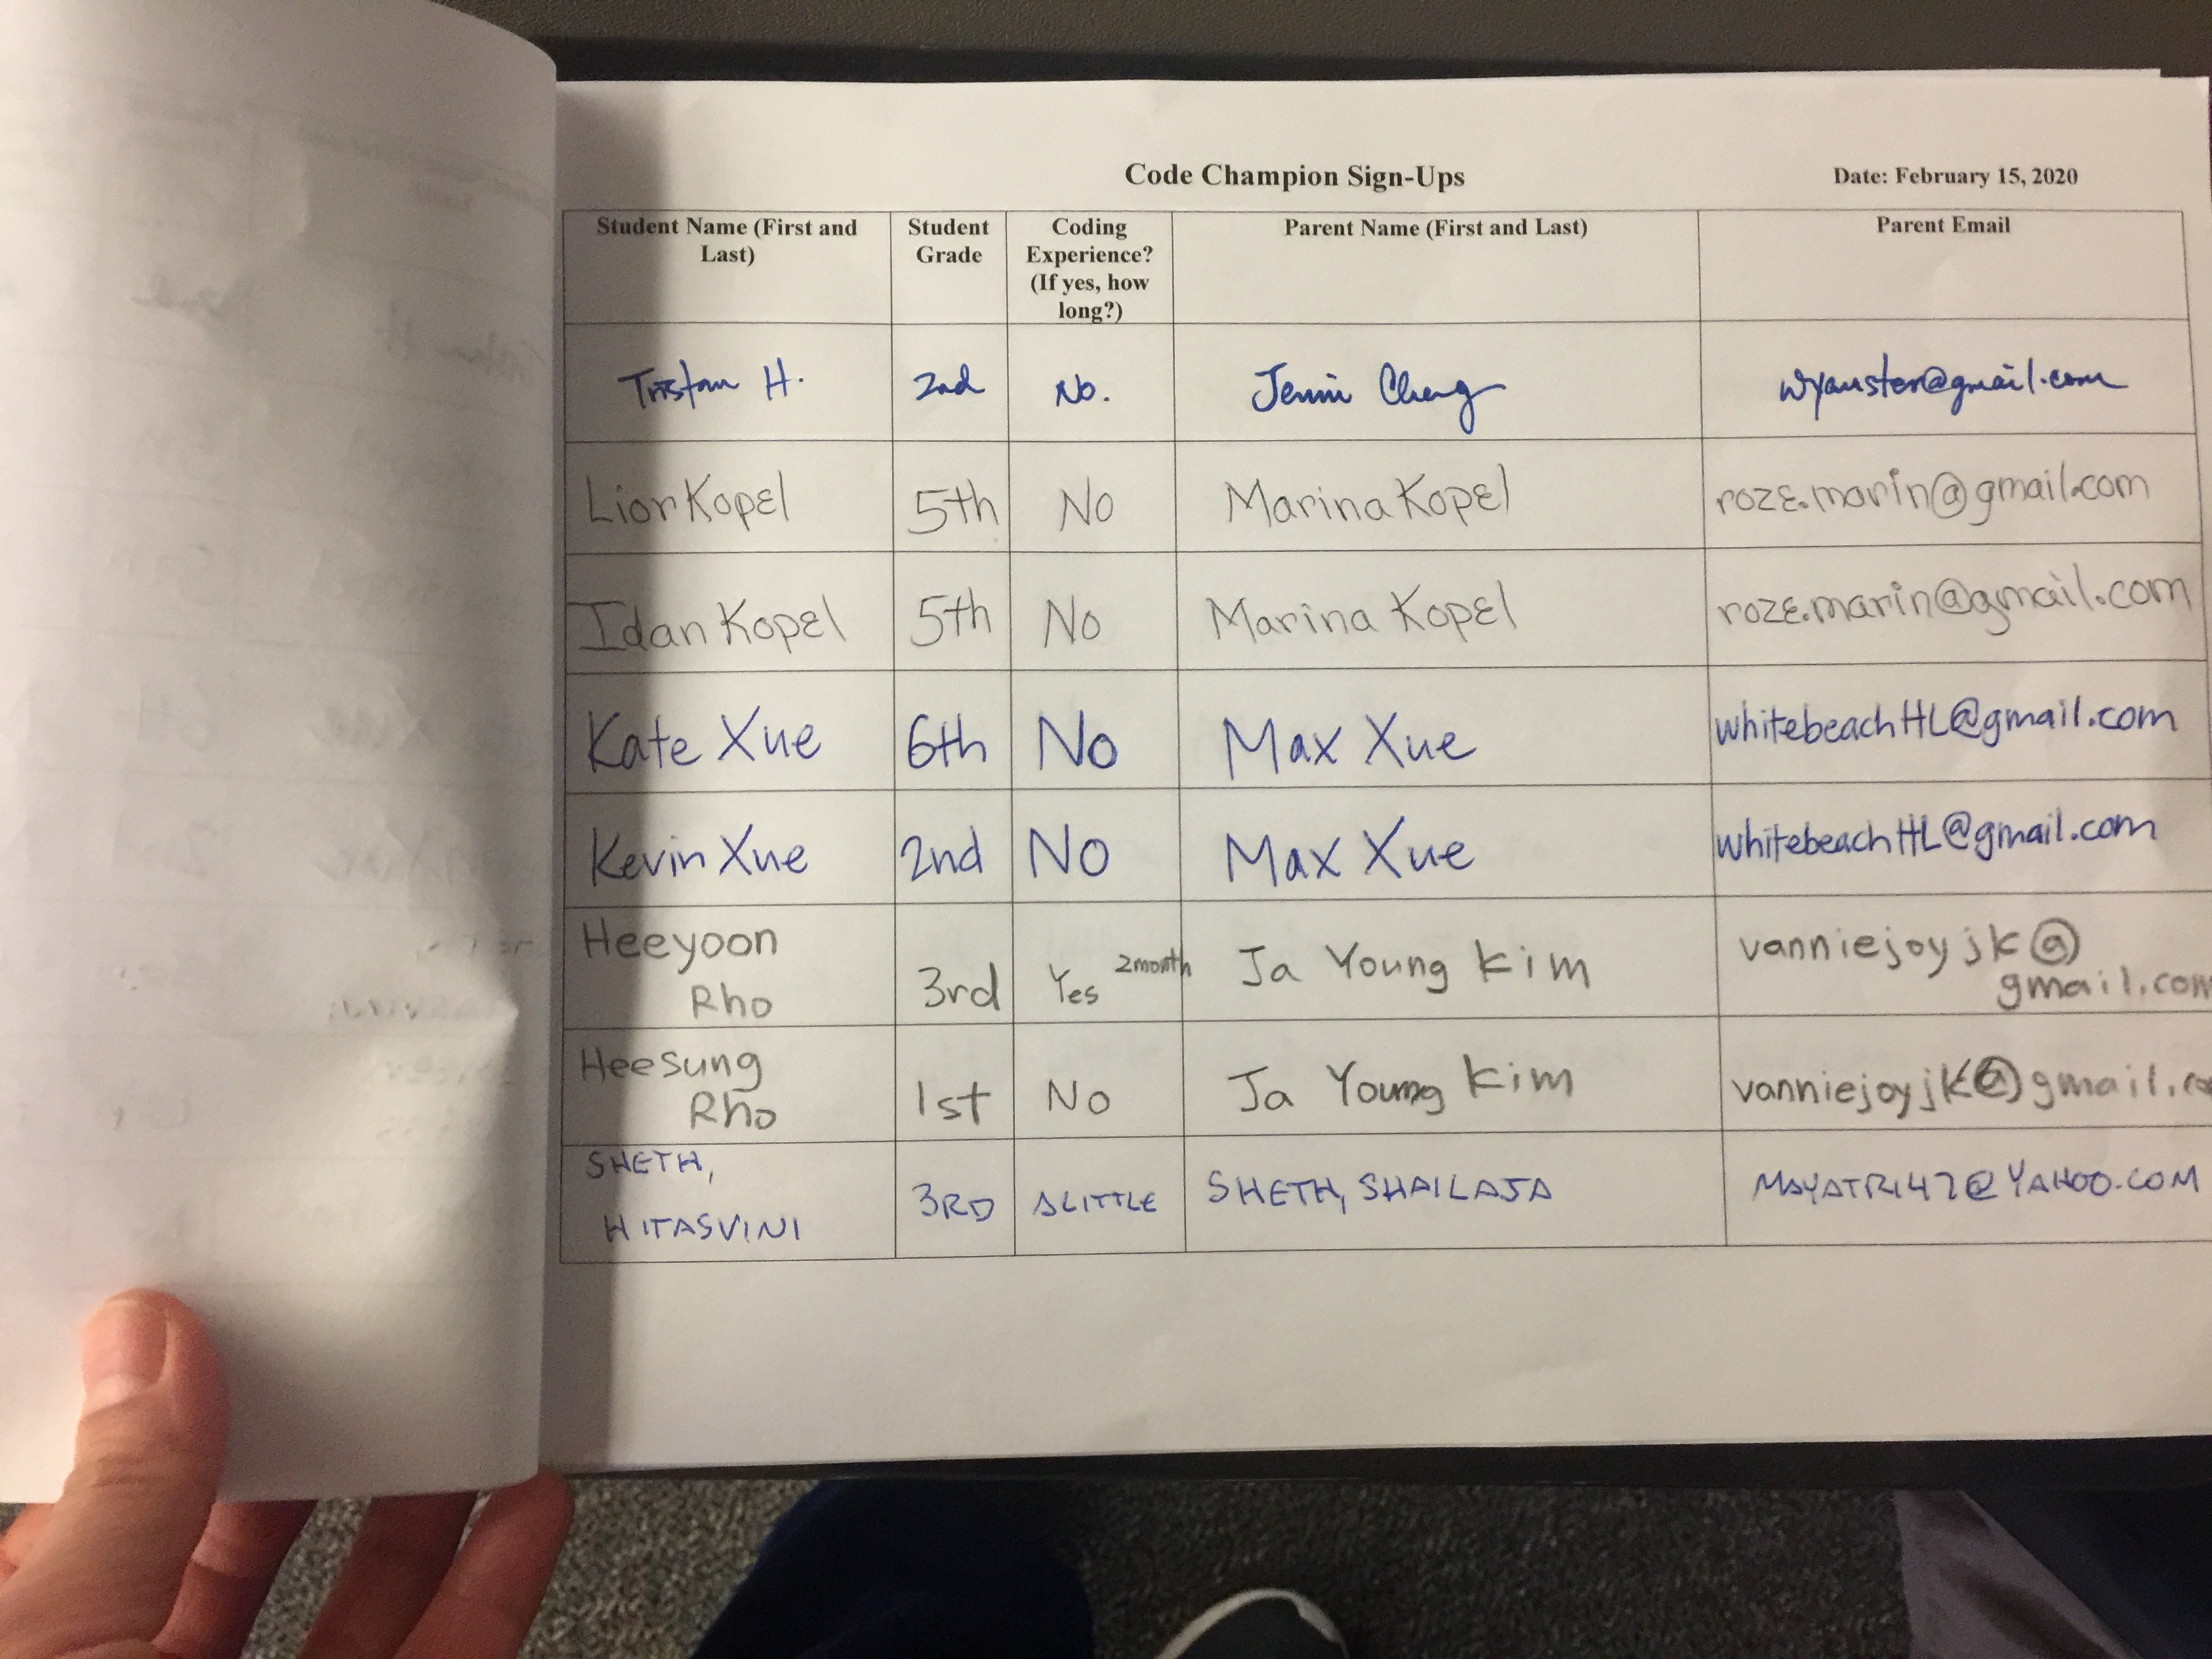 Code Champion Sign-Ups Date: February 15, 2020
Student Name (First and Last) Student Grade Coding Experience? (If yes, how long?) Parent Name (First and Last) Parent Email
Tristan H. 2nd No. Jenni Cheng wyanster@gmail.com
Lior Kopel 5th No Marina Kopel roze.marin@gmail.com
Idan Kopel 5th No Marina Kopel roze.marin@gmail.com
Kate Xue 6th No Max Xue whitebeachHL@gmail.com
Kevin Xue 2nd No Max Xue whitebeachHL@gmail.com
Heeyoon Rho 3rd Yes 2month Ja Young Kim vanniejoyjk@gmail.com
Heesung Rho 1st No Ja Young Kim vanniejoyjk@gmail.co
SHETH, HITASVINI 3RD ALITTLE SHETH, SHAILAJA MAYATRI42@YAHOO.COM